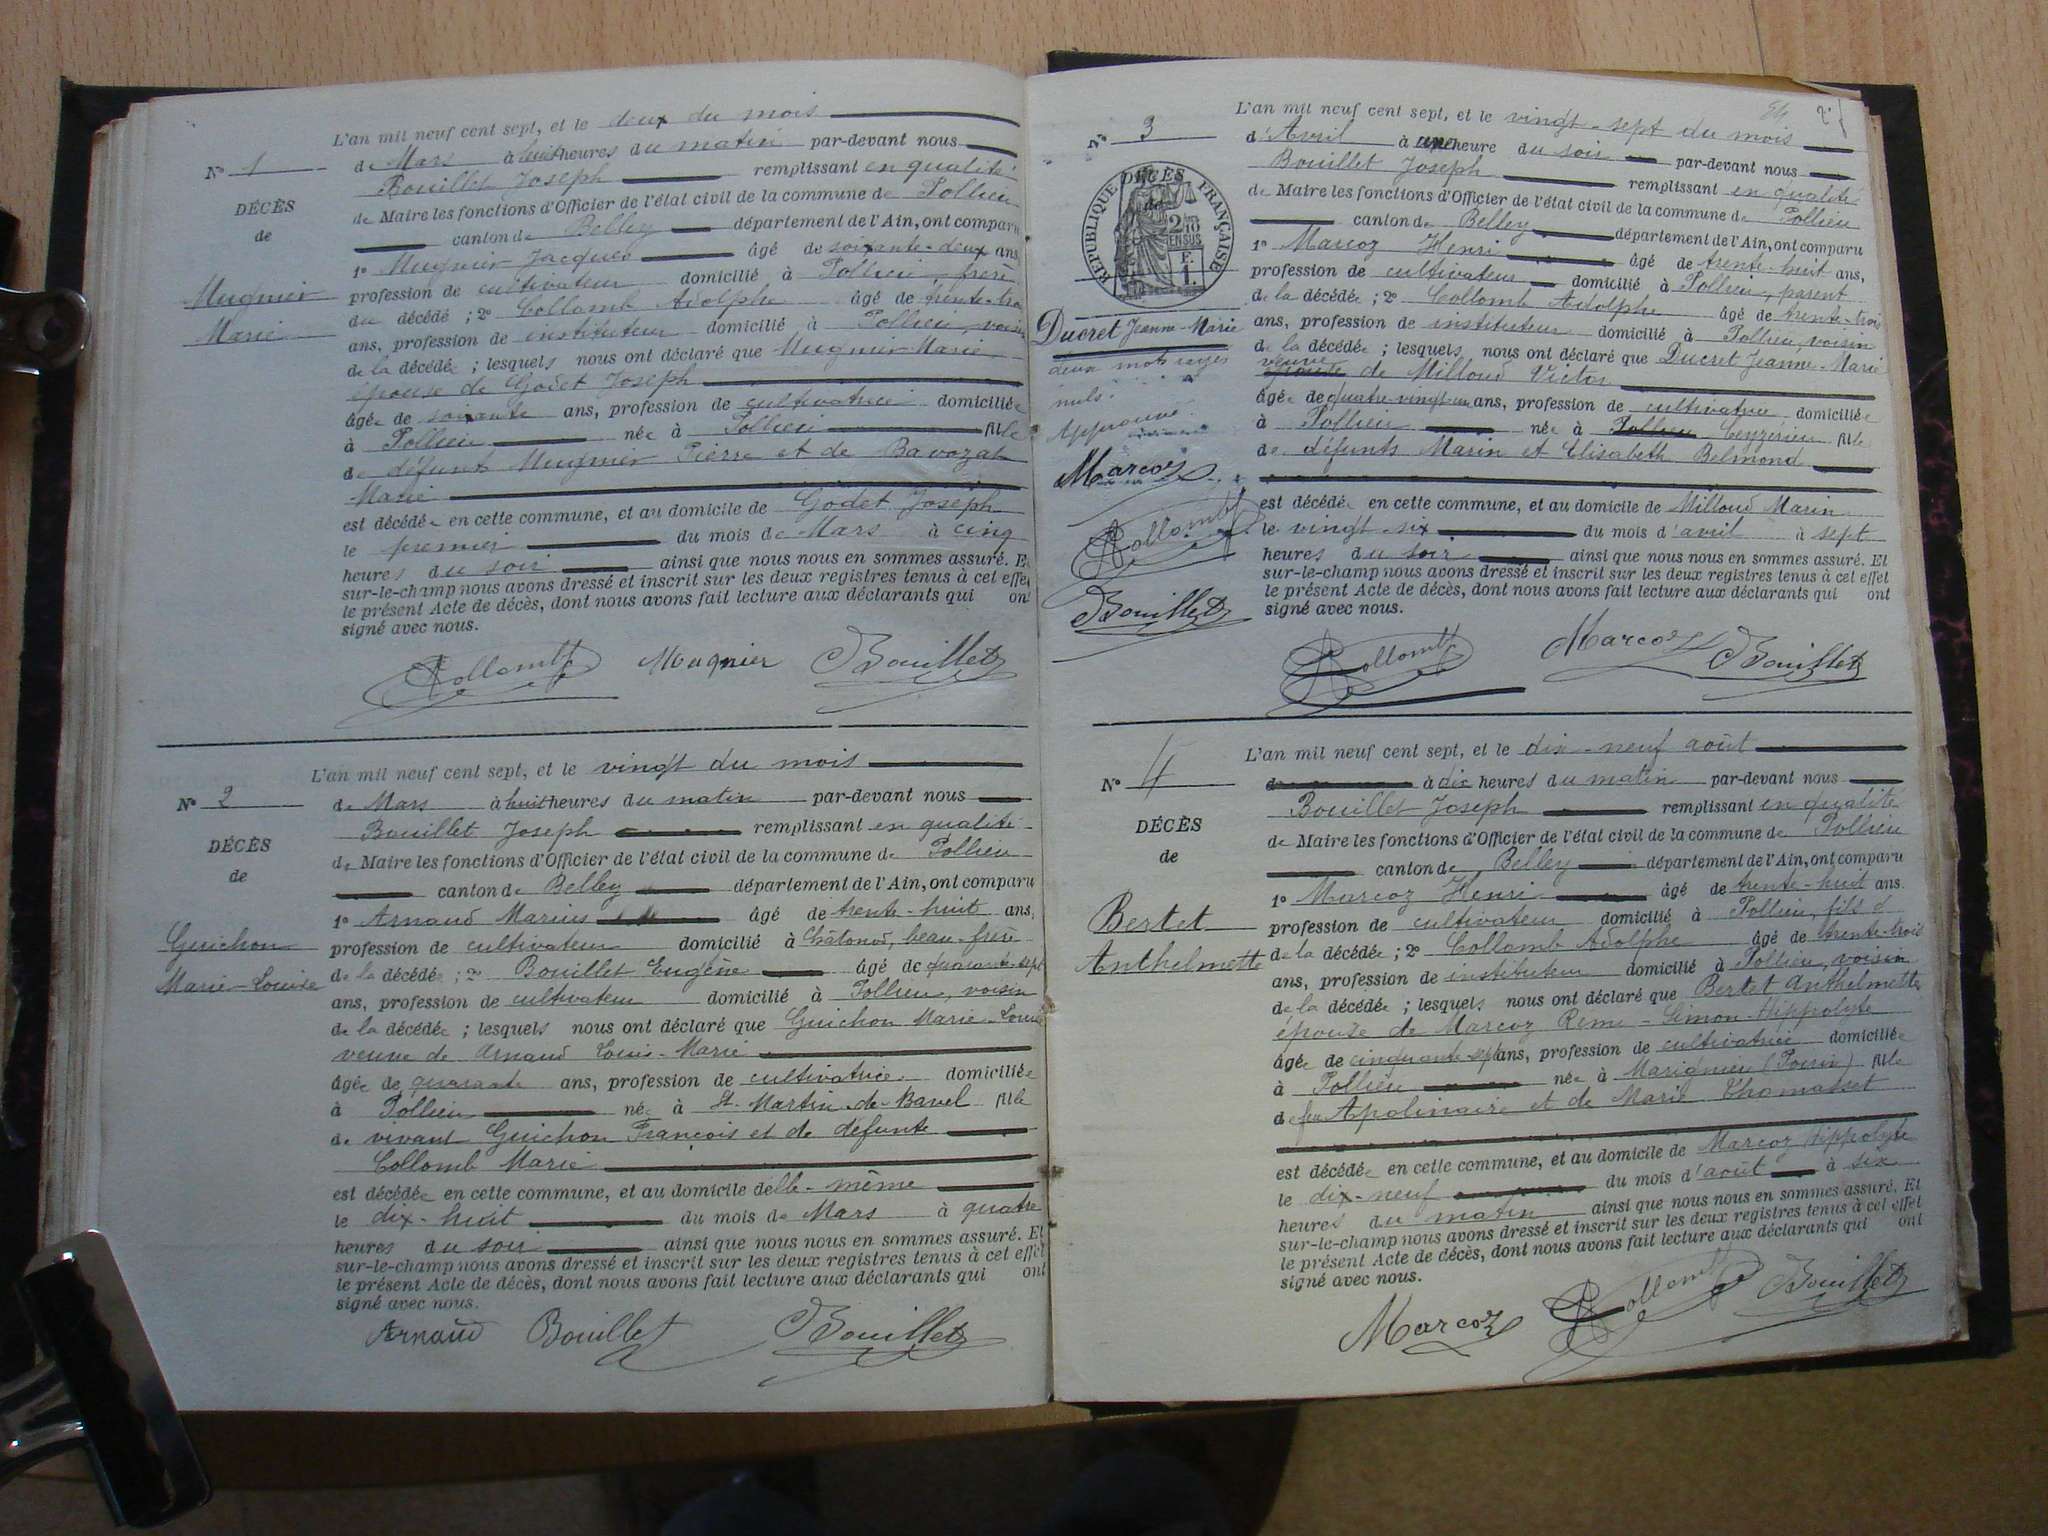 L'an mil neuf cent sept, et le deux du mois
N° 1
de Mars à huit heures du matin par-devant nous
Bouillet Joseph remplissant en qualité
DÉCÈS
de Maire les fonctions d'Officier de l'état civil de la commune de Pollieu
de
canton de Belley département de l'Ain, ont comparu
1° Mugnier Jacques âgé de soixante-deux ans,
Mugnier
profession de cultivateur domicilié à Pollieu, frère
Marie
du décédé ; 2° Collomb Adolphe âgé de trente-trois
ans, profession de instituteur domicilié à Pollieu, voisin
de la décédée ; lesquels nous ont déclaré que Mugnier Marie
épouse de Godet Joseph
âgée de soixante ans, profession de cultivatrice domiciliée
à Pollieu née à Pollieu fille
de défunts Mugnier Pierre et de Bavozat
Marie
est décédée en cette commune, et au domicile de Godet Joseph
le premier du mois de Mars à cinq
heures du soir ainsi que nous nous en sommes assuré. Et
sur-le-champ nous avons dressé et inscrit sur les deux registres tenus à cet effet
le présent Acte de décès, dont nous avons fait lecture aux déclarants qui ont
signé avec nous.
Collomb Mugnier Bouillet
L'an mil neuf cent sept, et le vingt du mois
N° 2
de Mars à huit heures du matin par-devant nous
Bouillet Joseph remplissant en qualité
DÉCÈS
de Maire les fonctions d'Officier de l'état civil de la commune de Pollieu
de
canton de Belley département de l'Ain, ont comparu
1° Arnaud Marius âgé de trente-huit ans,
Guichon
profession de cultivateur domicilié à Châtonod, beau-frère
Marie-Louise
de la décédée ; 2° Bouillet Eugène âgé de quarante-sept
ans, profession de cultivateur domicilié à Pollieu, voisin
de la décédée ; lesquels nous ont déclaré que Guichon Marie-Louise
veuve de Arnaud Louis-Marie
âgée de quarante ans, profession de cultivatrice domiciliée
à Pollieu née à St. Martin-de-Bavel fille
de vivant Guichon François et de défunte
Collomb Marie
est décédée en cette commune, et au domicile d'elle-même
le dix-huit du mois de Mars à quatre
heures du soir ainsi que nous nous en sommes assuré. Et
sur-le-champ nous avons dressé et inscrit sur les deux registres tenus à cet effet
le présent Acte de décès, dont nous avons fait lecture aux déclarants qui ont
signé avec nous.
Arnaud Bouillet Bouillet
L'an mil neuf cent sept, et le vingt-sept du mois
N° 3
d'Avril à une heure du soir par-devant nous
Bouillet Joseph remplissant en qualité
RÉPUBLIQUE FRANÇAISE
DÉCÈS
de
2/10 EN SUS
F. 1.
de Maire les fonctions d'Officier de l'état civil de la commune de Pollieu
canton de Belley département de l'Ain, ont comparu
1° Marcoz Henri âgé de trente-huit ans,
profession de cultivateur domicilié à Pollieu, parent
de la décédée ; 2° Collomb Adolphe âgé de trente-trois
Ducret Jeanne-Marie
ans, profession de instituteur domicilié à Pollieu, voisin
de la décédée ; lesquels nous ont déclaré que Ducret Jeanne-Marie
veuve
épouse de Milloud Victor
deux mots rayés
nuls.
Approuvé.
Marcoz
Collomb
Bouillet
âgée de quatre vingt un ans, profession de cultivatrice domiciliée
à Pollieu née à Pollieu Ceyzérieu fille
de défunts Marin et Elisabeth Belmond
est décédée en cette commune, et au domicile de Milloud Marin
le vingt six du mois d'avril à sept
heures du soir ainsi que nous nous en sommes assuré. Et
sur-le-champ nous avons dressé et inscrit sur les deux registres tenus à cet effet
le présent Acte de décès, dont nous avons fait lecture aux déclarants qui ont
signé avec nous.
Collomb Marcoz Bouillet
L'an mil neuf cent sept, et le dix-neuf août
N° 4
d à dix heures du matin par-devant nous
Bouillet Joseph remplissant en qualité
DÉCÈS
de Maire les fonctions d'Officier de l'état civil de la commune de Pollieu
de
canton de Belley département de l'Ain, ont comparu
1° Marcoz Henri âgé de trente-huit ans.
Bertet
profession de cultivateur domicilié à Pollieu, fils
Anthelmette
de la décédée ; 2° Collomb Adolphe âgé de trente-trois
ans, profession de instituteur domicilié à Pollieu, voisin
de la décédée ; lesquels nous ont déclaré que Bertet Anthelmette
épouse de Marcoz Réme-Simon-Hippolyte
âgée de cinquante sept ans, profession de cultivatrice domiciliée
à Pollieu née à Marignieu fille
de feu Apolinaire et de Marie Thomasset
est décédée en cette commune, et au domicile de Marcoz Hippolyte
le dix-neuf du mois d'août à six
heures du matin ainsi que nous nous en sommes assuré. Et
sur-le-champ nous avons dressé et inscrit sur les deux registres tenus à cet effet
le présent Acte de décès, dont nous avons fait lecture aux déclarants qui ont
signé avec nous.
Marcoz Collomb Bouillet